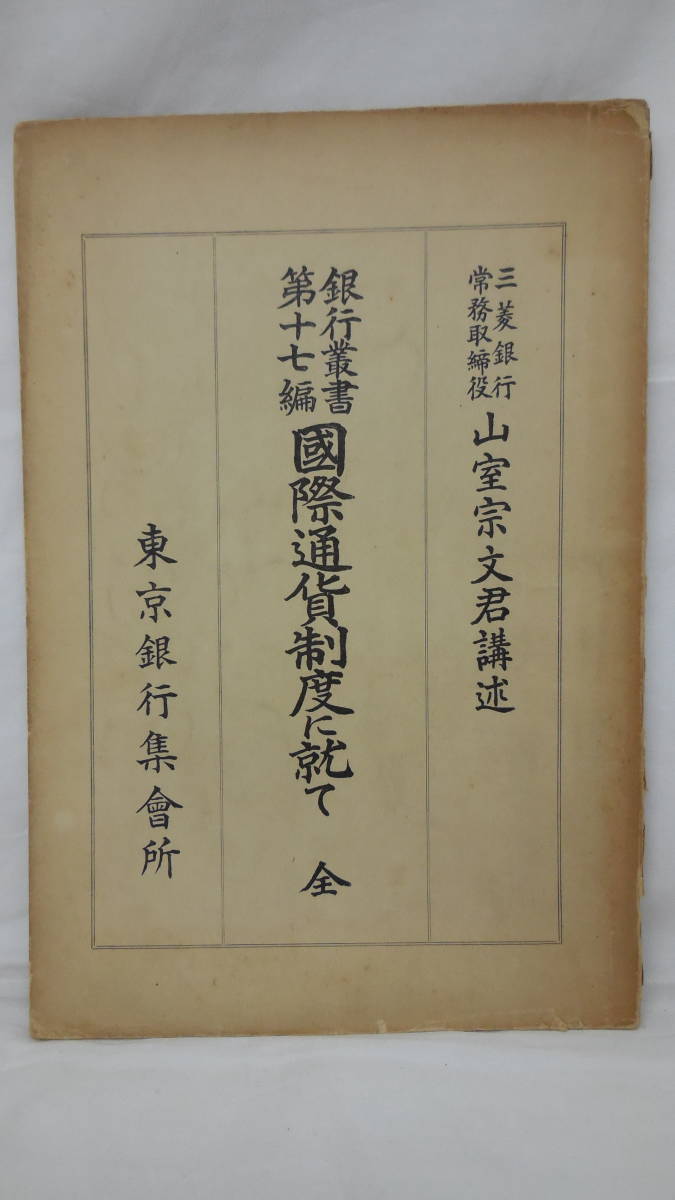 三菱銀行
常務取締役
山室宗文君講述
銀行叢書
第十七編
國際通貨制度に就て　全
東京銀行集會所